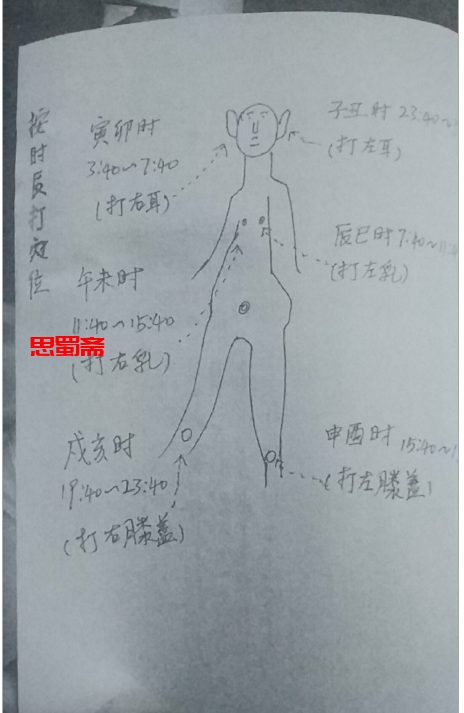 按时反打定位
寅卯时
3:40~7:40
(打右耳)
子丑时 23:40~
(打左耳)
辰巳时 7:40~11:4
(打左乳)
午未时
11:40~15:40
(打右乳)
思蜀斋
戌亥时
19:40~23:40
(打右膝盖)
申酉时 15:40~1
(打左膝盖)